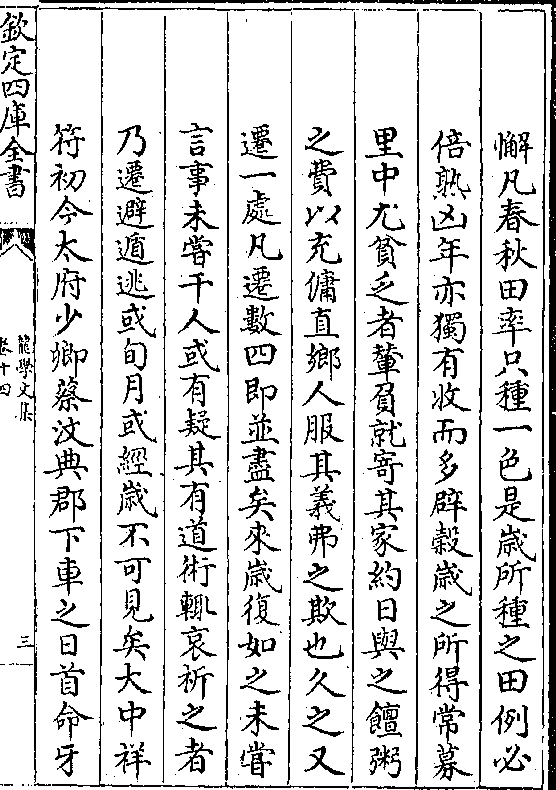 懈凡春秋田率只種一色是嵗所種之田例必
倍熟凶年亦獨有收而多辟榖嵗之所得常募
里中尤貧乏者輦負就寄其家約日與之饘粥
之費以充傭直鄉人服其義弗之欺也久之又
遷一處凡遷數四即並盡矣來嵗復如之未嘗
言事未嘗干人或有疑其有道術輙哀祈之者
乃遷避遁逃或旬月或經嵗不可見矣大中祥
符初今太府少卿蔡汶典郡下車之日首命牙
欽定四庫全書
龍學文集
卷十四
三